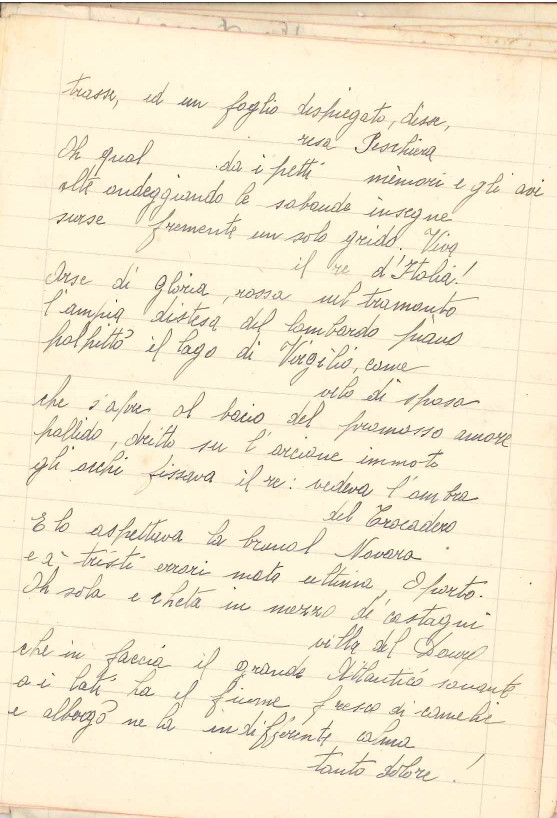 trasse, ed un foglio dispiegato, disse,
resa Peschiera
Oh qual da i petti mèmori e gli avi
alte ondeggiando le sabaude insegne
surse fremente un solo grido. Viva
il re d'Italia!
Arse di glòria, rossa nel tramonto
l'ampia distesa del lombardo piano
palpittò il lago di Virgilio, come
velo di sposa
che s'apre al bacio del promosso amore
pallido, dritto su l'arcione immoto
gli occhi fissava il re: vedeva l'ombra
del Trocadero
E lo aspettava la brumal Novara
e a' tristi errori mèta ultima Oporto.
Oh sola e cheta in mezzo dé castagni
villa del Douro
che in faccia il grande Atlanticó sonante
a i lati ha el fiume fresco di camelie
e albergò ne la indifferente calma
tanto dolore!